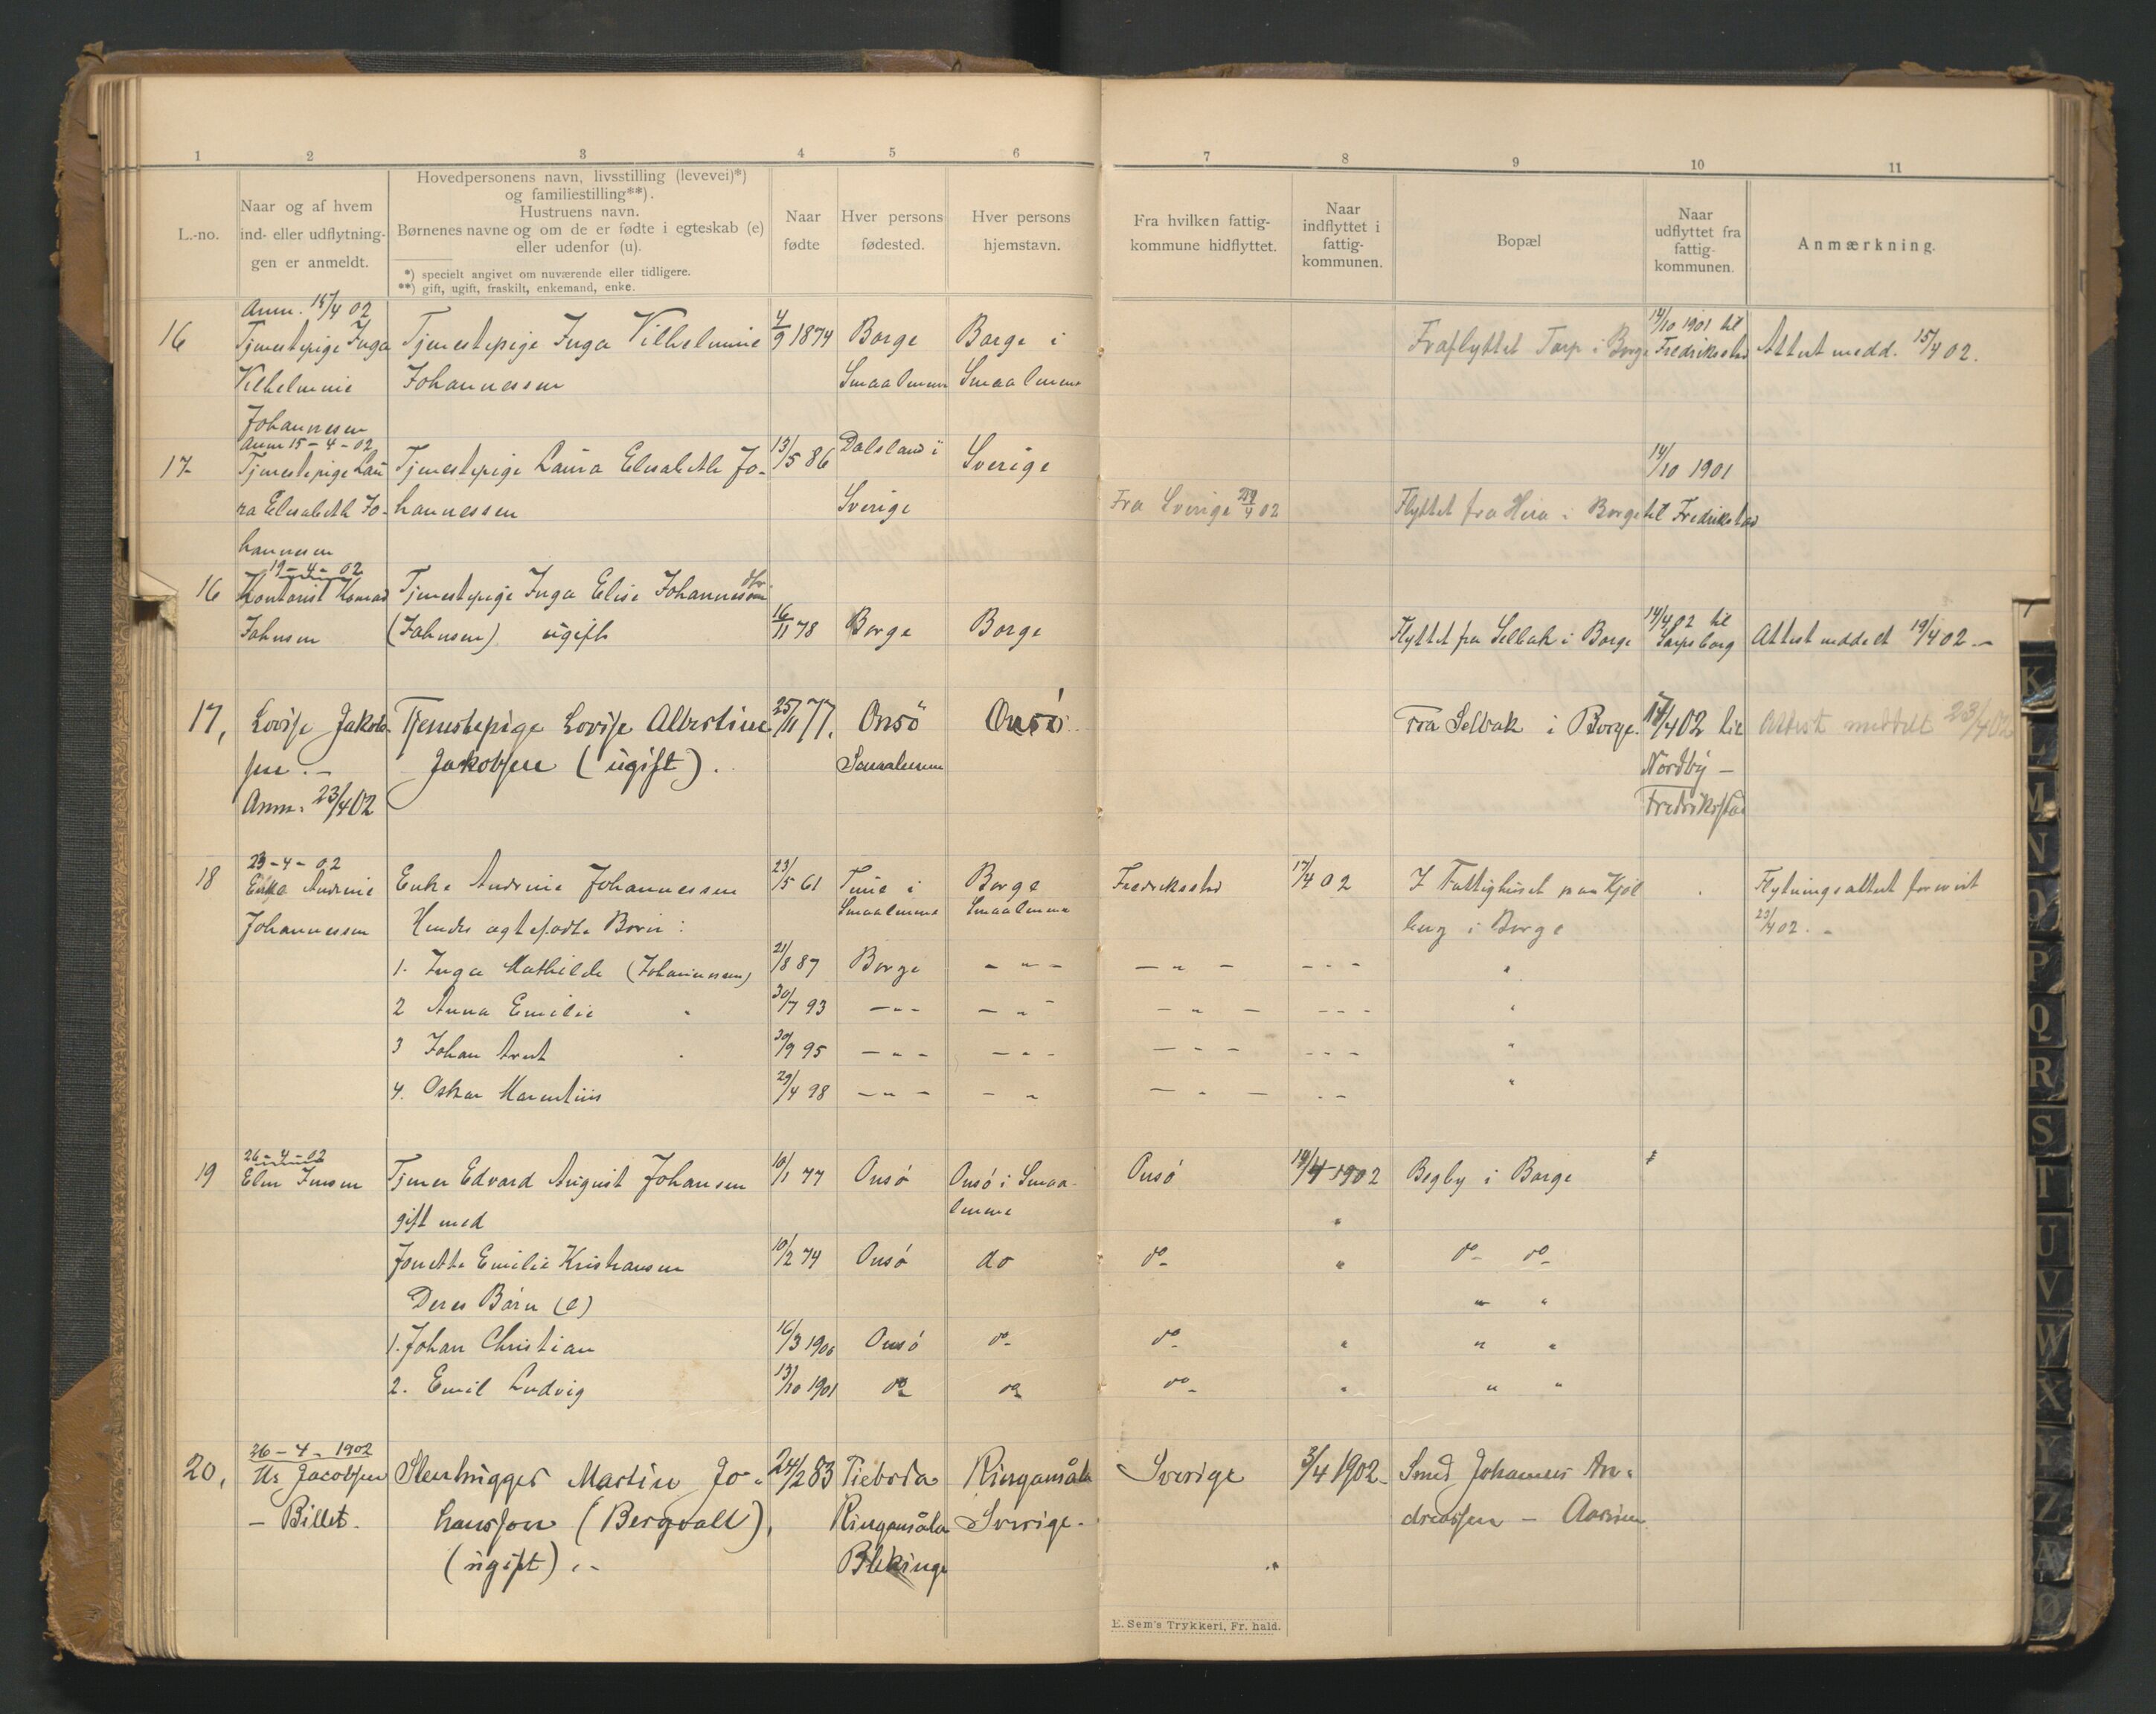 1 2 3 4 5 6 7 8 9 10 11
L.-no.
Naar og af hvem
ind- eller udflytnin-
gen er anmeldt.
Hovedpersonens navn, livsstilling (levevei)*)
og familiestilling**).
Hustruens navn.
Børnenes navne og om de er fødte i egteskab (e)
eller udenfor (u).
*) specielt angivet om nuværende eller tidligere.
**) gift, ugift, fraskilt, enkemand, enke.
Naar
fødte
Hver persons
fødested.
Hver persons
hjemstavn.
Fra hvilken fattig-
kommune hidflyttet.
Naar
indflyttet i
fattig-
kommunen.
Bopæl
Naar
udflyttet fra
fattig-
kommunen.
Anmærkning.
Anm. 15/4 02
16 Tjenestepige Inga Tjenestepige Inga Vilhelmine 4/9 1874 Borge Borge i Fraflyttet Torp i Borge 14/10 1901 til Fredriksstad Attest medd. 15/4 02.
Vilhelmine Johannessen Smaalenene Smaalenene
Johannesen
Anm 15-4-02
17 Tjenestepige Lau Tjenestepige Laura Elisabeth Jo- 13/5 86 Dalsland i Sverige 14/10 1901
ra Elisabeth Jo- hannessen Sverige Fra Sverige 4 02 Flyttet fra i Borge til Fredrikstad
hannesen
19-4-02
16 Kontorist Konrad Tjenestepige Inga Elise Johannesen dtr.
Johnsen (Johnsen) ugift 16/11 78 Borge Borge Flyttet fra Selbak i Borge 14/4 02 til Sarpsborg Attest meddelt 19/4 02.-
17, Lovise Jakob- Tjenestepige Lovise Albertine 25/11 77. Onsö Onsö Fra Selbak i Borge. 14/4 02 til Attest meddelt 23/4 02
sen.- Jakobsen (ugift). Smaalenene Nordby -
Anm. 23/4 02 Fredriksstad
23-4-02
18 Enke Andrine Enke Andrine Johannessen 23/5 61 Tune i Borge Fredriksstad 17/4 02 I Fattighuset paa Kjøl Flytningsattest forevist
Johannessen Hendes ægtefødte Børn: Smaalenene Smaalenene berg i Borge 23/4 02.
1. Inga Mathilde (Johannessen) 21/8 87 Borge - " - - " - - - - "
2 Anna Emilie " 30/7 93 - " - - " - - " - - - - "
3 Johan Arnt " 30/9 95 - " - - " - - " - - - - "
4. Oskar Marentius 29/4 98 - " - - " - " - - - "
26-4-02
19 Elen Jensen Tjener Edvard August Johansen 10/1 77 Onsö Onsö i Smaa- Onsö 19/4 1902 Begby i Borge
gift med lenene "
Jonette Emilie Kristiansen 10/2 74 Onsö do do " do do
Deres Børn (e) " "
1. Johan Christian 16/3 1900 Onsö do do " " "
2. Emil Ludvig 13/10 1901 do do do " " "
26-4-1902
20, Jacobsen Stenhugger Martin Jo- 24/2 83 Tieboda Ringamåla Sverige 3/4 1902. Smed Johannes An-
- Billet. hansson (Bergvall), Ringamåla Sverige. dreassen -
(ugift).- Blekinge
E. Sem's Trykkeri, Fr. hald.
K
L
M
N
O
P
Q
R
S
T
U
V
W
X
Y
Z
Æ
Ø